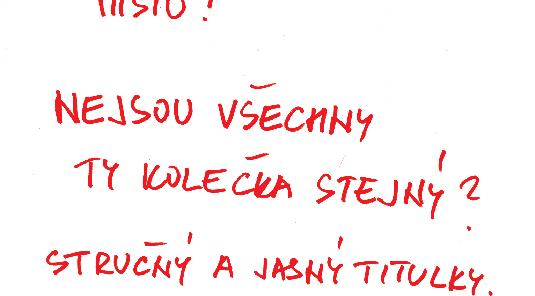 místo?
NEJSOU VŠECHNY
TY KOLEČKA STEJNÝ?
STRUČNÝ A JASNÝ TITULKY.